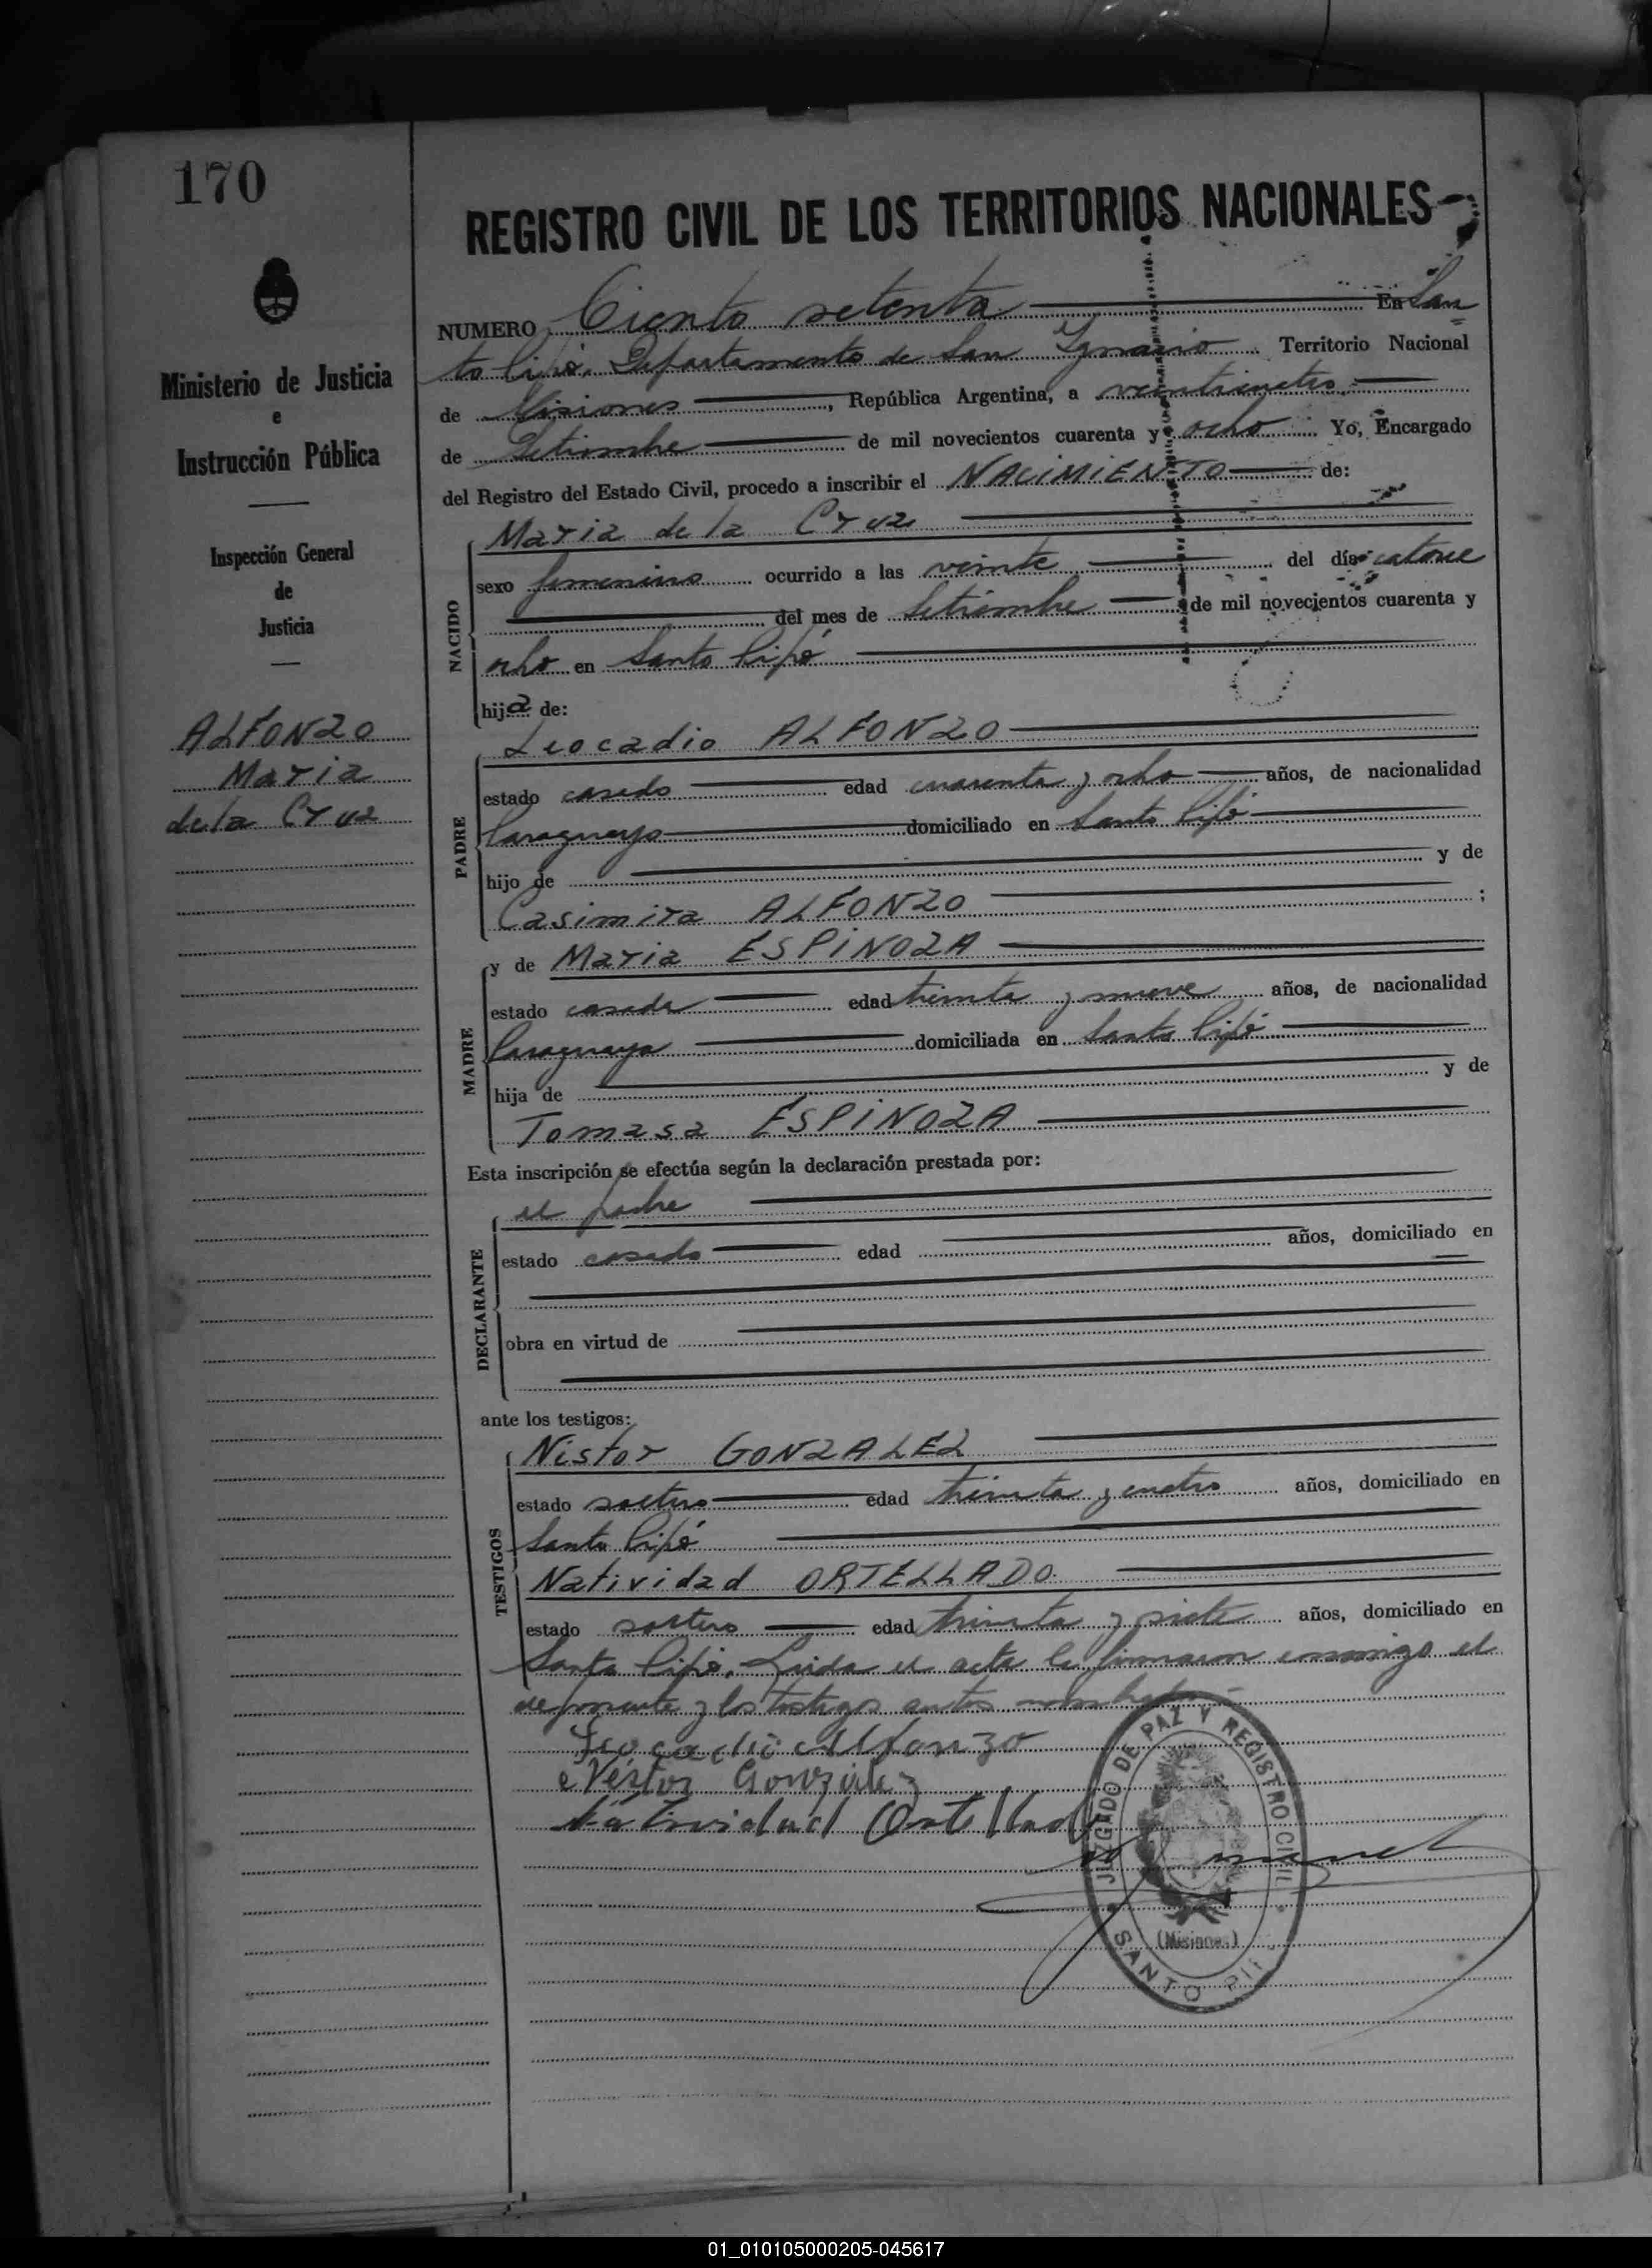 170
REGISTRO CIVIL DE LOS TERRITORIOS NACIONALES
NUMERO Ciento setenta En San
to Pipó, Departamento de San Ignacio Territorio Nacional
de Misiones, República Argentina, a veinticuatro
de Setiembre de mil novecientos cuarenta y ocho Yo, Encargado
del Registro del Estado Civil, procedo a inscribir el NACIMIENTO de:
Maria de la Cruz
sexo femenino ocurrido a las veinte del día catorce
del mes de Setiembre de mil novecientos cuarenta y
ocho en Santo Pipó
hija de:
Leocadio ALFONZO
estado casado edad cuarenta y ocho años, de nacionalidad
Paraguayo domiciliado en Santo Pipó
hijo de y de
Casimira ALFONZO ;
y de Maria ESPINOZA
estado casada edad treinta y nueve años, de nacionalidad
Paraguaya domiciliada en Santo Pipó
hija de y de
Tomasa ESPINOZA
Esta inscripción se efectúa según la declaración prestada por:
el padre
estado casado edad años, domiciliado en
obra en virtud de
ante los testigos:
Nestor GONZALEZ
estado soltero edad treinta y cuatro años, domiciliado en
Santo Pipó
Natividad ORTELLADO
estado soltero edad treinta y siete años, domiciliado en
Santo Pipó. Leida el acta la firmaron conmigo el
deponente y los testigos antes nombrados
Leocadio Alfonzo
Néstor González
Natividad Ortellado
NACIDO
PADRE
MADRE
DECLARANTE
TESTIGOS
Ministerio de Justicia
e
Instrucción Pública
Inspección General
de
Justicia
ALFONZO
Maria
de la Cruz
JUZGADO DE PAZ Y REGISTRO CIVIL
(Misiones)
SANTO PIPO
01_010105000205-045617